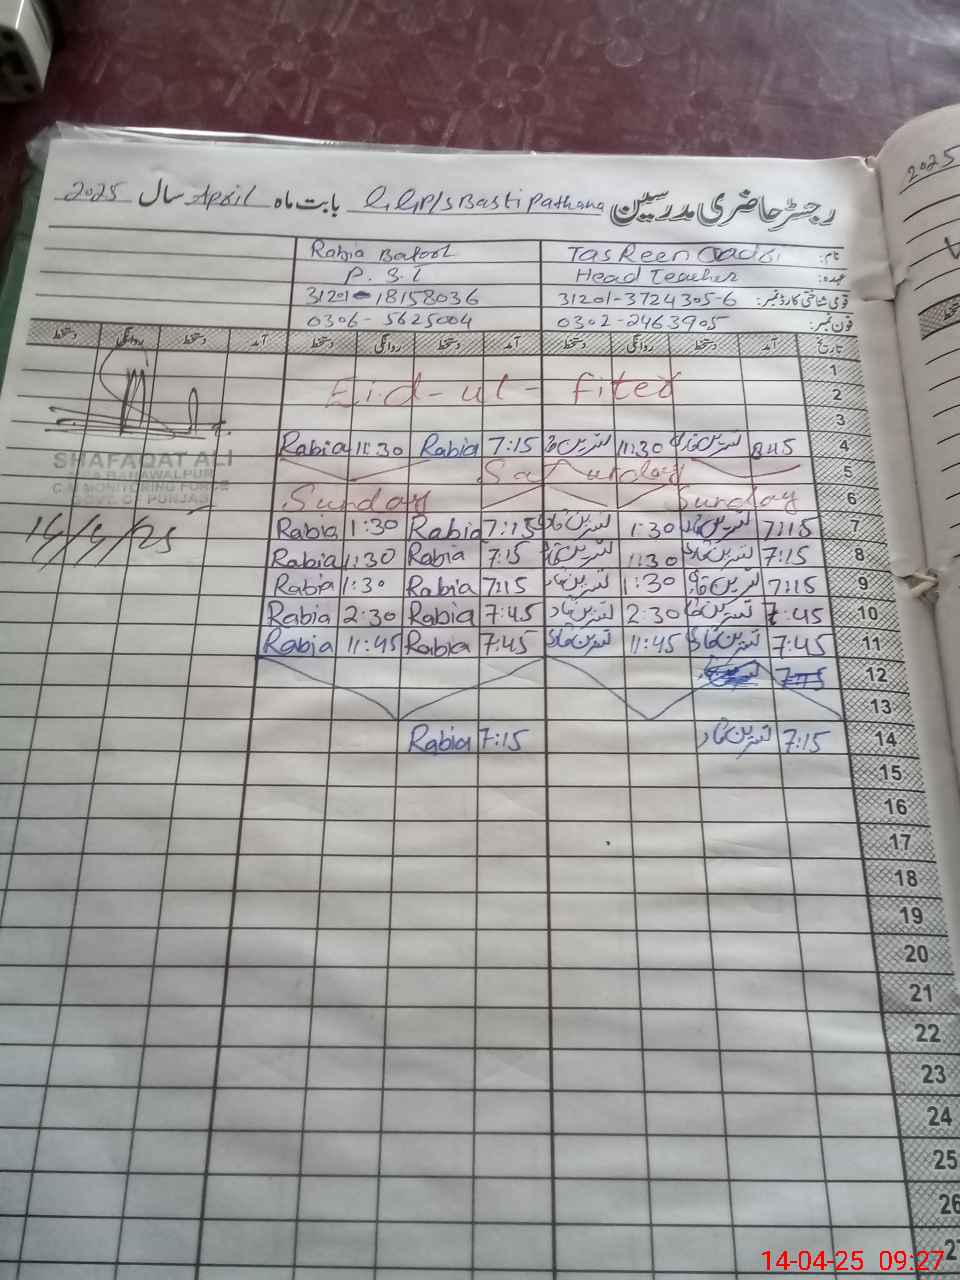 رجسٹر حاضری مدرسین G.G.P/S Basti Pathana بابت ماہ April سال 2025
2025
نام: TasReen Qadri Rabia Batool
عہدہ: Head Teacher P.S.T
قومی شناختی کارڈ نمبر: 31201-3724305-6 31201-18158036
فون نمبر: 0302-2463905 0306-5625004
تاریخ آمد دستخط روانگی دستخط آمد دستخط روانگی دستخط آمد دستخط روانگی دستخط
1
2 Eid-ul-fiter
3
4 8:45 11:30 7:15 Rabia 11:30 Rabia
5 Saturday
6 Sunday Sunday
7 7:15 1:30 7:15 Rabia 1:30 Rabia
8 7:15 11:30 7:15 Rabia 11:30 Rabia
9 7:15 1:30 7:15 Rabia 1:30 Rabia
10 7:45 2:30 7:45 Rabia 2:30 Rabia
11 7:45 11:45 7:45 Rabia 11:45 Rabia
12 7:15
13
14 7:15 7:15 Rabia
15
16
17
18
19
20
21
22
23
24
25
26
27
SHAFAQAT ALI
GOVT. OF PUNJAB
14/4/25
14-04-25 09:27